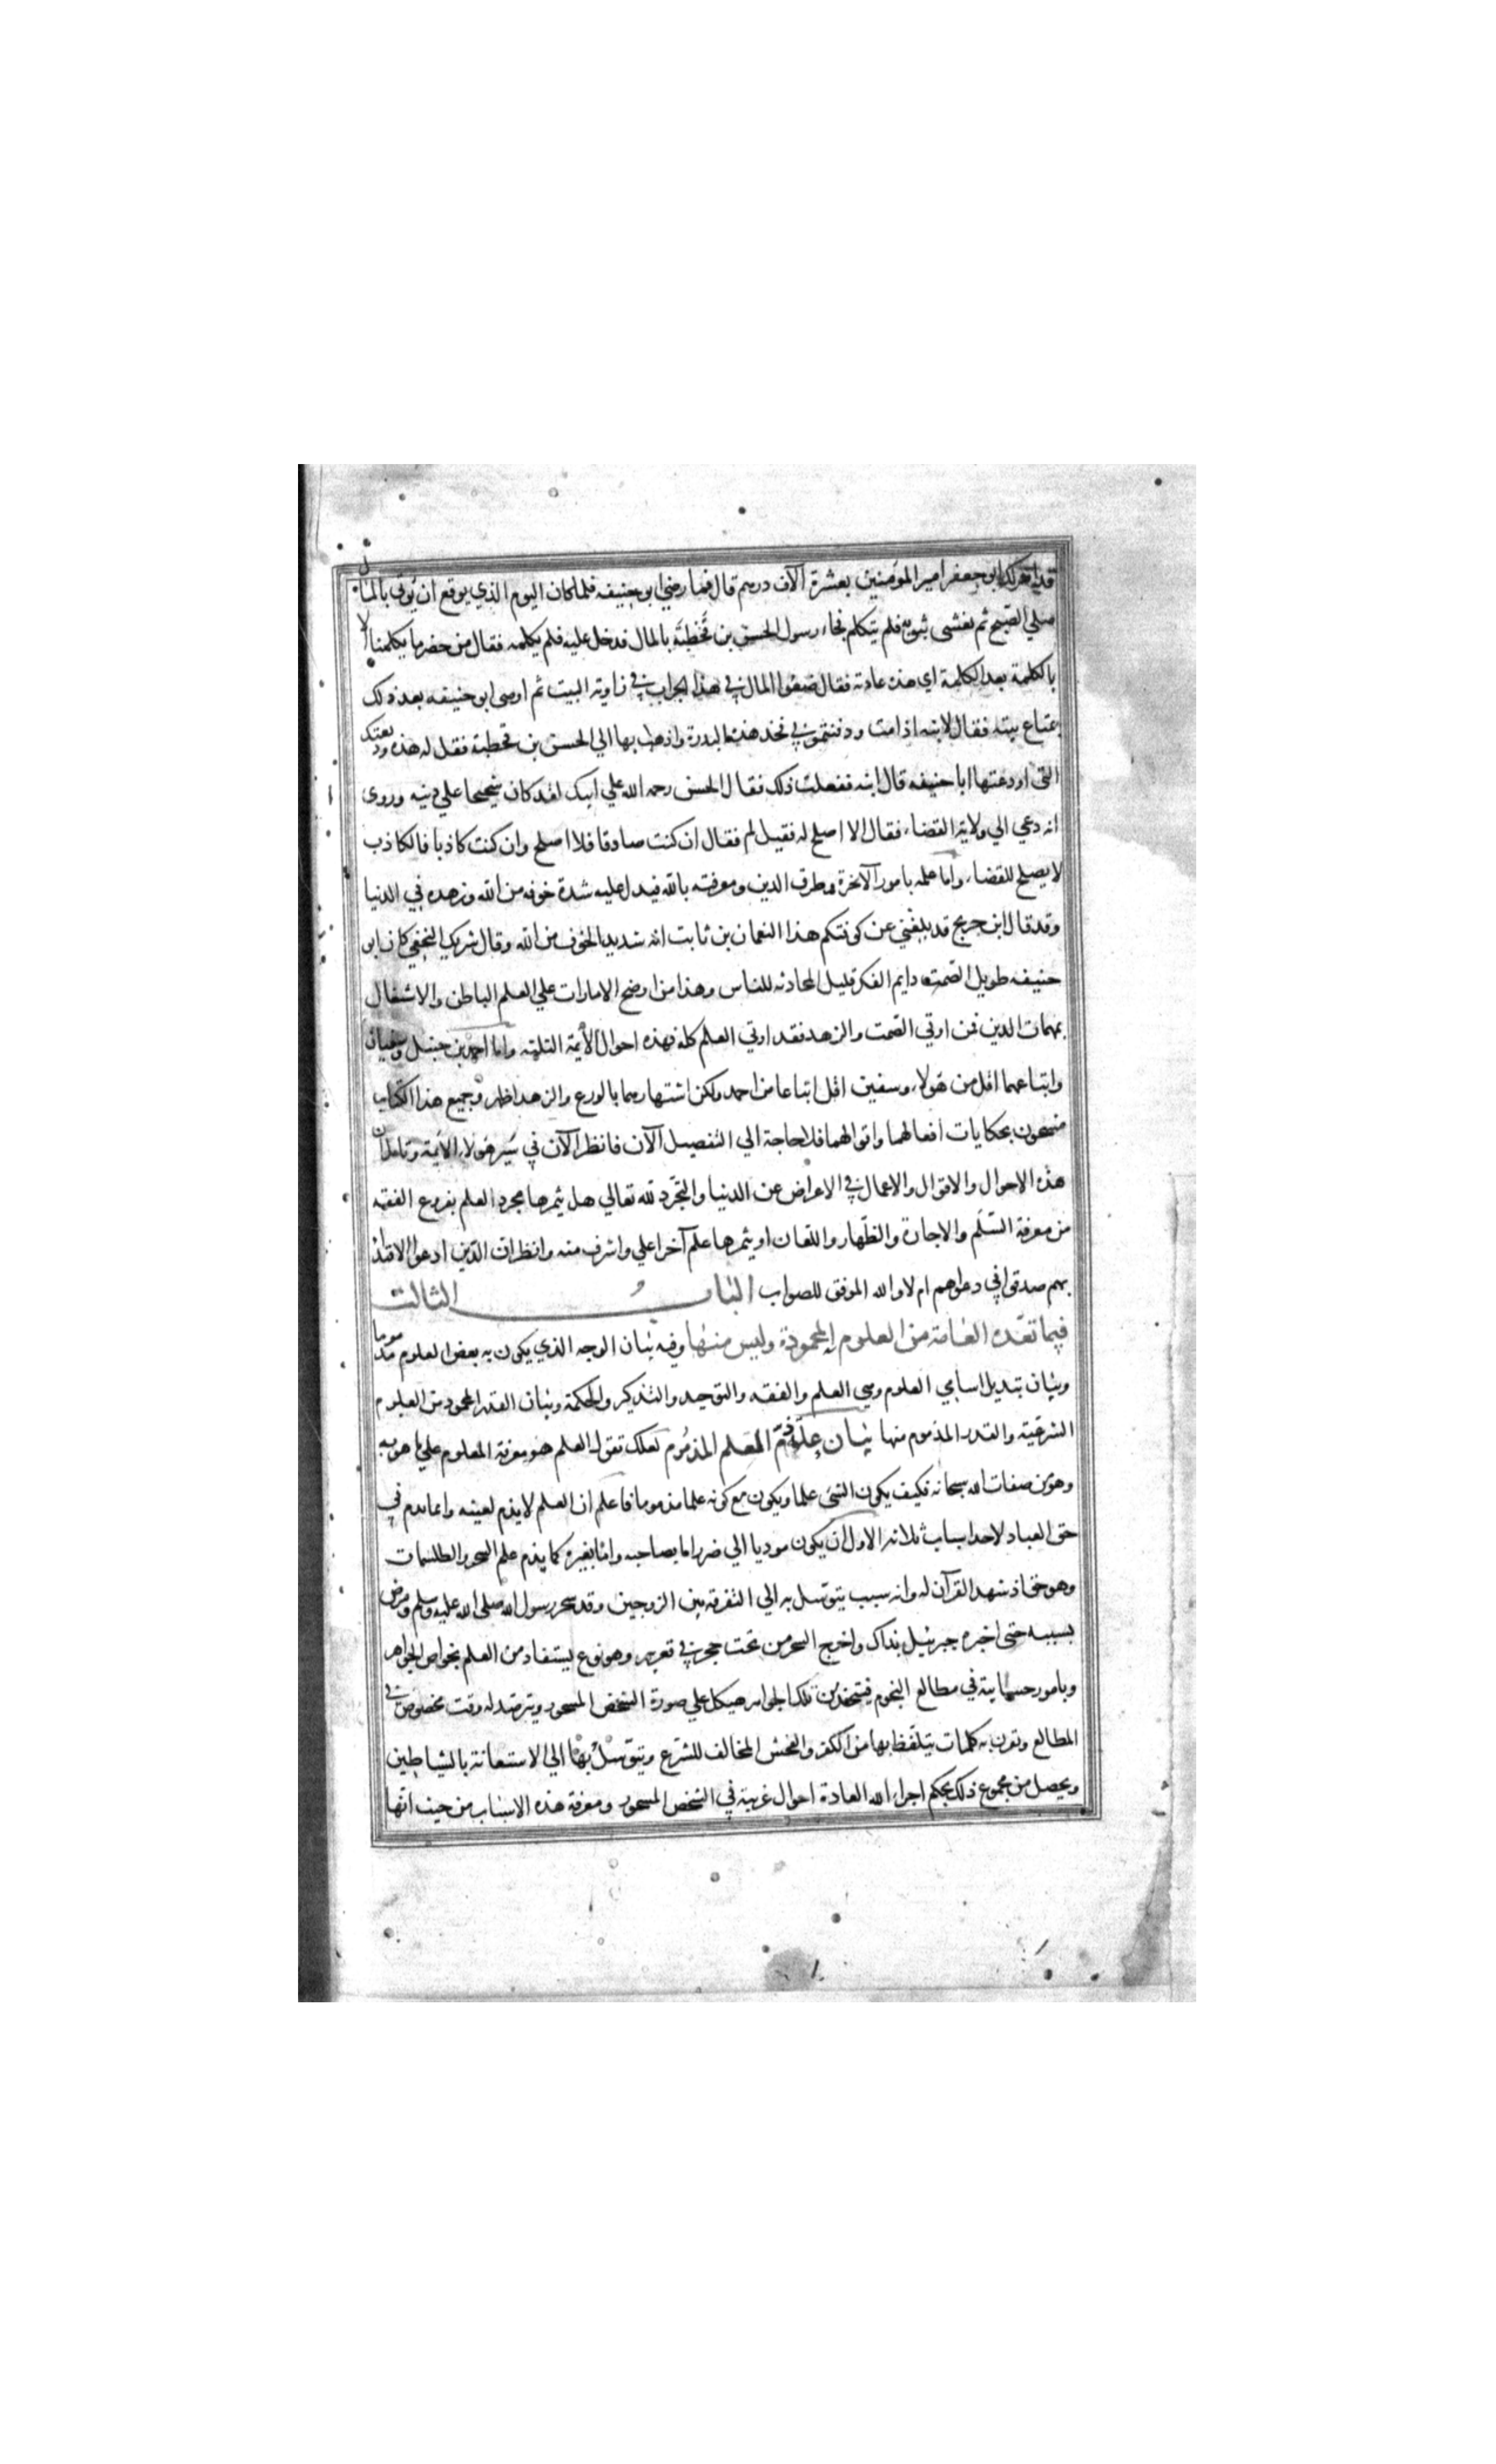 قد امر لك ابو جعفر امير المؤمنين بعشرة آلاف درهم قال فما رضي ابو حنيفه فلما كان اليوم الذي يوقع ان يؤتى بالمال
صلي الصبح ثم تغشى بثوبه فلم يتكلم فجاء رسول الحسن بن قحطبة بالمال فدخل عليه فلم يكلمه فقال من حضر ما يكلمنا الا
بالكلمة بعد الكلمة اي هذه عادته فقال ضعوا المال في هذا الجراب في زاوية البيت ثم اوصى ابو حنيفه بعد ذلك
بمتاع بيته فقال لابنه اذا مت ودفنتموني فخذ هذه البدرة واذهب بها الي الحسن بن قحطبة فقل له هذه وديعتك
التي اودعتها ابا حنيفه قال ابنه ففعلت ذلك فقال الحسن رحمه الله علي ابيك لقد كان شحيحا علي دينه وروى
انه دعي الي ولاية القضاء فقال لا اصلح له فقيل لم فقال ان كنت صادقا فلا اصلح وان كنت كاذبا فالكاذب
لا يصلح للقضاء واما علمه بامور الآخرة وطرق الدين ومعرفته بالله فيدل عليه شدة خوفه من الله وزهده في الدنيا
وقد قال ابن جريج قد بلغني عن كوفتكم هذا النعمان بن ثابت انه شديد الخوف من الله وقال شريك النخعي كان ابو
حنيفه طويل الصمت دايم الفكر قليل المحادثه للناس وهذا من اوضح الامارات علي العلم الباطن والاشتغال
بمهمات الدين فمن اوتي الصمت والزهد فقد اوتي العلم كله فهذه احوال الأيمة الثلثه واما احمد بن حنبل وسفيان
واتباعهما اقل من هولاء وسفين اقل اتباعا من احمد ولكن اشتهارهما بالورع والزهد اظهر وجميع هذا الكتاب
مشحون بحكايات افعالهما واقوالهما فلا حاجة الي التفصيل الآن فانظر الآن في سير هولاء الأيمة وتامل ان
هذه الاحوال والاقوال والاعمال في الاعراض عن الدنيا والتجرد لله تعالي هل يثمرها مجرد العلم بفروع الفقه
من معرفة السلم والاجارة والظهار واللعان او يثمرها علم آخر اعلي واشرف منه وانظر ان الذين ادعوا الاقتداء
بهم صدقوا في دعواهم ام لا والله الموفق للصواب الباب الثالث
فيما تعده العامة من العلوم المحمودة وليس منها وفيه بيان الوجه الذي يكون به بعض العلوم مذموما
وبيان تبديل اسامي العلوم وهي العلم والفقه والتوحيد والتذكير والحكمة وبيان القدر المحمود من العلوم
الشرعية والقدر المذموم منها بيان علة ذم العلم المذموم لعلك تقول العلم هو معرفة المعلوم علي ما هو به
وهو من صفات الله سبحانه فكيف يكون الشئ علما ويكون مع كونه علما مذموما فاعلم ان العلم لا يذم لعينه وانما يذم في
حق العباد لاحد اسباب ثلاثه الاول ان يكون موديا الي ضرر اما بصاحبه واما بغيره كما يذم علم السحر والطلسمات
وهو حق اذ شهد القرآن له وانه سبب يتوسل به الي التفرقه بين الزوجين وقد سحر رسول الله صلى الله عليه وسلم ومرض
بسببه حتى اخبره جبرئيل بذاك واخرج السحر من تحت حجر في قعر بير وهو نوع يستفاد من العلم بخواص الجواهر
وبامور حسابية في مطالع النجوم فيتخذ من تلك الجواهر هيكل علي صورة الشخص المسحور ويترصد له وقت مخصوص في
المطالع وتقرن به كلمات يتلفظ بها من الكفر والفحش المخالف للشرع ويتوسل بها الي الاستعانة بالشياطين
ويحصل من مجموع ذلك بحكم اجراء الله العادة احوال غريبة في الشخص المسحور ومعرفة هذه الاسباب من حيث انها